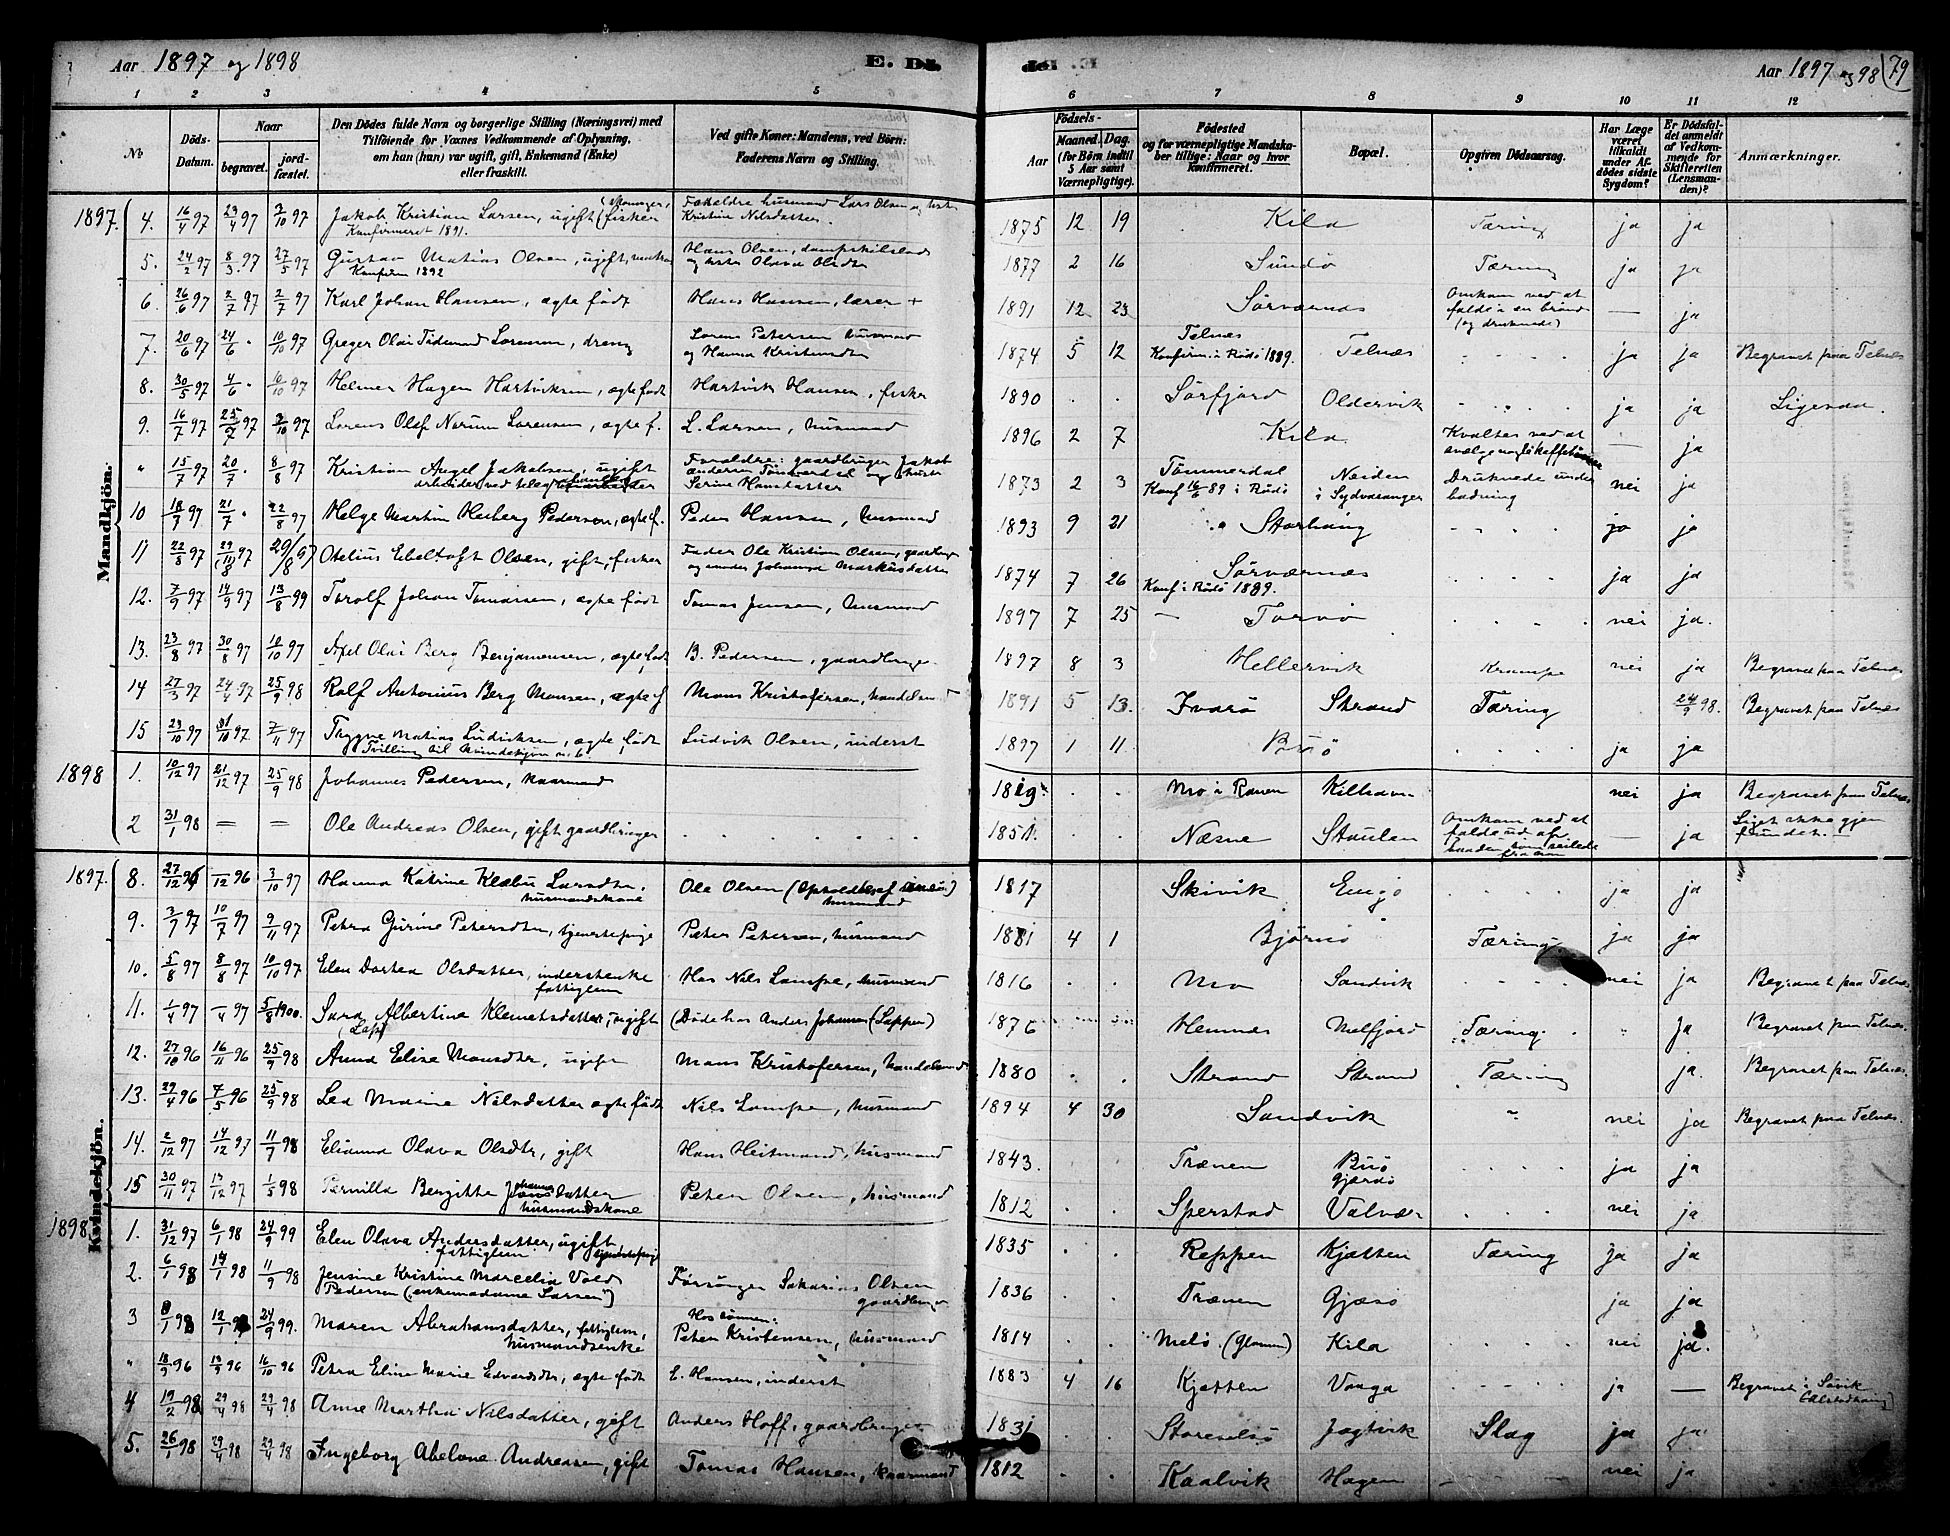 Aar 1897 og 1898
E. Dö
Aar 1897 og 98
79
1 2 3 4 5
6 7 8 9 10 11 12
No
Döds-Datum.
Naar
begravet.
jord-fæstet.
Den Dödes fulde Navn og borgerlige Stilling (Næringsvei) med
Tilföiende for Voxnes Vedkommende af Oplysning,
om han (hun) var ugift, gift, Enkemand (Enke)
eller fraskilt.
Ved gifte Koner: Mandens, ved Börn:
Faderens Navn og Stilling.
Födsels-
Aar
Maaned. Dag.
(for Börn indtil
5 Aar samt
Værnepligtige).
Födested
og for værnepligtige Mandska-
ber tillige: Naar og hvor
konfirmeret.
Bopæl.
Opgiven Dödsaarsag.
Har Læge
været
tilkaldt
under Af-
dödes sidste
Sygdom?
Er Dödsfal-
det anmeldt
af Vedkom-
mende for
Skifteretten
(Lensman-
den)?
Anmærkninger.
Mandkjön.
1897. 4. 16/4 97 23/4 97 3/10 97 Jakob Kristian Larsen, ugift fisker Konfirmeret 1891. husmand Lars Olsen Kristine Nilsdatter. 1875 12 19 Kila Tæring ja ja
5. 24/2 97 8/3 97 27/5 97 Gustav Matias Olsen, ugift, Konfirm 1892 Hans Olsen, 1877 2 16 Sundö Tæring ja ja
6. 26/6 97 2/7 97 2/7 97 Karl Johan Hansen, ægte født Hans Hansen, lærer + 1891 12 23 Sørværnes Omkom ved at falde i en brønd (og druknede) — ja
7. 20/6 97 24/6 " 10/10 97 Greger Olai Tidemand Lorensen, dreng Lorens Petersen husmand og Hanna Kristensdtr 1874 5 12 Telnes Konfirm. i Rödö 1889. Telnæs ja ja Begravet paa Telnæs
8. 30/5 97 4/6 " 10/10 97 Helmer Hagen Hartviksen, ægte født Hartvik Hansen, fisker 1890 Sörfjord Oldervik ja ja Ligesaa.
9. 16/7 97 25/7 97 3/10 97 Lorens Olaf Norum Larensen, ægte f. L. Larsen, husmand 1896 2 7 Kila Kvaltes ved at — ja
" 15/7 97 20/7 " 8/8 97 Kristian Angel Jakobsen, ugift arbeider ved Forældre: gaardbruger Jakob Andersen Tømmerdal og hustr Serine Hansdatter 1873 2 3 Tømmerdal Konf 16/6 89 i Rödö Neiden i Sydvaranger Druknede under badning nei ja
10 18/7 97 21/7 " 22/8 97 Helge Martin Heiberg Pedersen, ægte f. Peder Hansen, husmand 1893 9 21 Storhaug ja ja
11 22/8 97 29/8 97 29/8 97 Otelius Ebeltoft Olsen, gift, fisker Fader Ole Kristian Olsen, og moder Johanna Markusdatter 1874 7 26 Sørværnes Konf i Rödö 1889. ja ja
12. 7/9 97 14/9 97 13/8 99 Torolf Johan Tomassen, ægte født Tomas Jensen, husmand 1897 7 25 — Torvö nei ja.
13. 23/8 97 30/8 97 10/10 97 Axel Olai Berg Benjaminsen, ægte født B. Pedersen, gaardbruger 1897 8 3 Hellervik Krampe nei ja Begravet paa Telnæs
14 27/3 97 24/4 97 25/9 98 Rolf Antonius Berg Monsen, ægte f Mons Kristofersen, handelsmd 1891 5 13 Ivarö Strand Tæring 24/9 98. Begravet paa Telnæs
15 23/10 97 31/10 97 7/11 97 Trygve Matias Ludviksen, ægte født Tvilling til kvindekjøn Ludvik Olsen, inderst 1897 1 11 Busö ja ja
1898 1. 10/12 97 21/12 97 25/9 98 Johannes Pedersen, kaarmand 1819 Mo i Ranen Kilhavn nei ja Begravet paa Telnæs
2 31/1 98 = = Ole Andreas Olsen, gift gaardbruger 1851. Næsne Staulen Omkom ved at falde ud af baaden som seilede fra ham — ja Liget ikke gjen fundet. —
Kvindekjön.
1897. 8. 27/12 96 /12 96 3/10 97 Hanna Katrine Klæbu Larsdtr. husmandskone Ole Olsen husmand 1817 Skivik ja ja
9. 3/7 97 10/7 97 9/11 97 Petra Gurine Petersdtr, tjenestepige Peter Petersen, husmand 1881 4 1 Bjørnö Tæring ja ja
10. 5/8 97 8/8 97 10/10 97 Elen Dortea Olsdatter, inderstenke fattiglem Hos Nils Lampe, husmand 1816 Mo Sandvik nei ja Begravet paa Telnæs
11. 1/4 97 /4 97 5/8 1900. Sara Albertine Klemetsdatter, ugift (Lap) (Døde hos Anders Johansen (Lappen) 1876 Hemnæs Melfjord Tæring " ja Begravet paa Telnæs
12. 27/10 96 16/11 96 25/9 98 Anna Elise Monsdtr, ugift Mons Kristofersen, handelsmd 1880 Strand Strand Tæring ja Begravet paa Telnæs.
13. 29/4 96 7/5 96 25/9 98 Lea Marine Nilsdatter ægte født Nils Lampe, husmand 1894 4 30 Sandvik " nei ja Begravet paa Telnæs.
14. 2/12 97 14/12 97 11/9 98 Olava Olsdtr, gift Hans Heitmand, husmand 1843. Trænen Busö Gjærdö ja ja
15 30/11 97 13/12 97 1/5 98 Pernilla Bergitte Johannesdatter husmandskone Peter Olsen, husmand 1812 Sperstad Valvær nei ja
1898 1. 31/12 97 6/1 98 24/9 99 Elen Olava Andersdatter, ugift fattiglem 1835 Reppen Kjætten Tæring ja ja
2. 6/1 98 17/1 98 11/9 98 Jensine Kristine Marcelia Vold Pedersen ("enkemadame Larsen") Sakarias Olsen gaardbruger 1836 Trænen Gjæsö ja ja
3 8/1 98 12/1 98 24/9 99. Maren Abrahamsdatter, fattiglem, husmandsenke Hos sønnen: Peter Kristensen, husmand 1814 Melö (Glommen) Kila nei ja.
" 18/9 96 19/9 96 16/10 96 Petra Eline Marie Edvardsdtr, ægte født E. Hansen, inderst 1883 4 16 Kjætten Vaaga ja — Begravet i Søvik (Alstadhaug)
4 19/2 98 29/4 98 29/4 98 Anne Martha Nilsdatter, gift Anders Hoff, gaardbruger 1831 Storselsö Jagtvik Slag ja ja
5. 26/1 98 29/4 98 29/4 98 Ingeborg Abelone Andreasen, gift Tomas Hansen, kaarmand 1812 Kaalvik Hagen nei ja